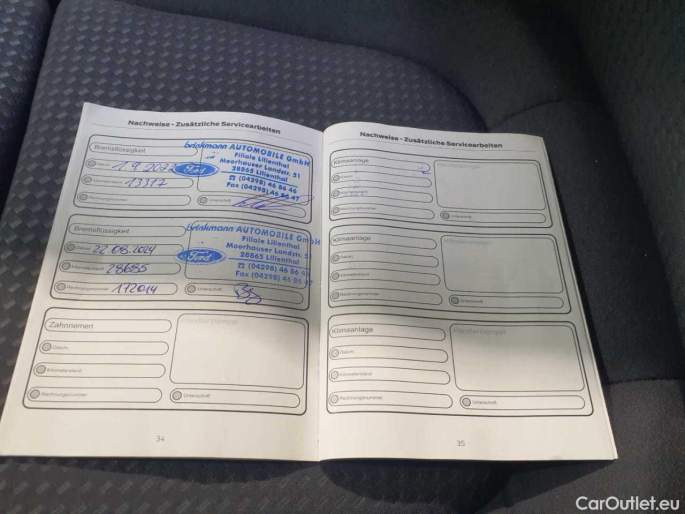 Nachweise - Zusätzliche Servicearbeiten
Bremsflüssigkeit
Datum
13317
Unterschrift
brinkmann AUTOMOBILE GmbH
Filiale Lilienthal
Moorhauser Landstr. 51
28865 Lilienthal
☎ (04298) 46 86 46
Fax (04298) 46 86 47
Ford
Bremsflüssigkeit
Datum 22.08.2024
Kilometerstand 28655
Rechnungsnummer 172014
Unterschrift
brinkmann AUTOMOBILE GmbH
Filiale Lilienthal
Moorhauser Landstr. 51
28865 Lilienthal
☎ (04298) 46 86 46
Fax (04298) 46 86 47
Ford
Zahnriemen
Datum
Kilometerstand
Rechnungsnummer
Händlerstempel
Unterschrift
34
Nachweise - Zusätzliche Servicearbeiten
Klimaanlage
Unterschrift
Klimaanlage
Datum
Kilometerstand
Rechnungsnummer
Unterschrift
Klimaanlage
Datum
Kilometerstand
Rechnungsnummer
Händlerstempel
Unterschrift
35
CarOutlet.eu